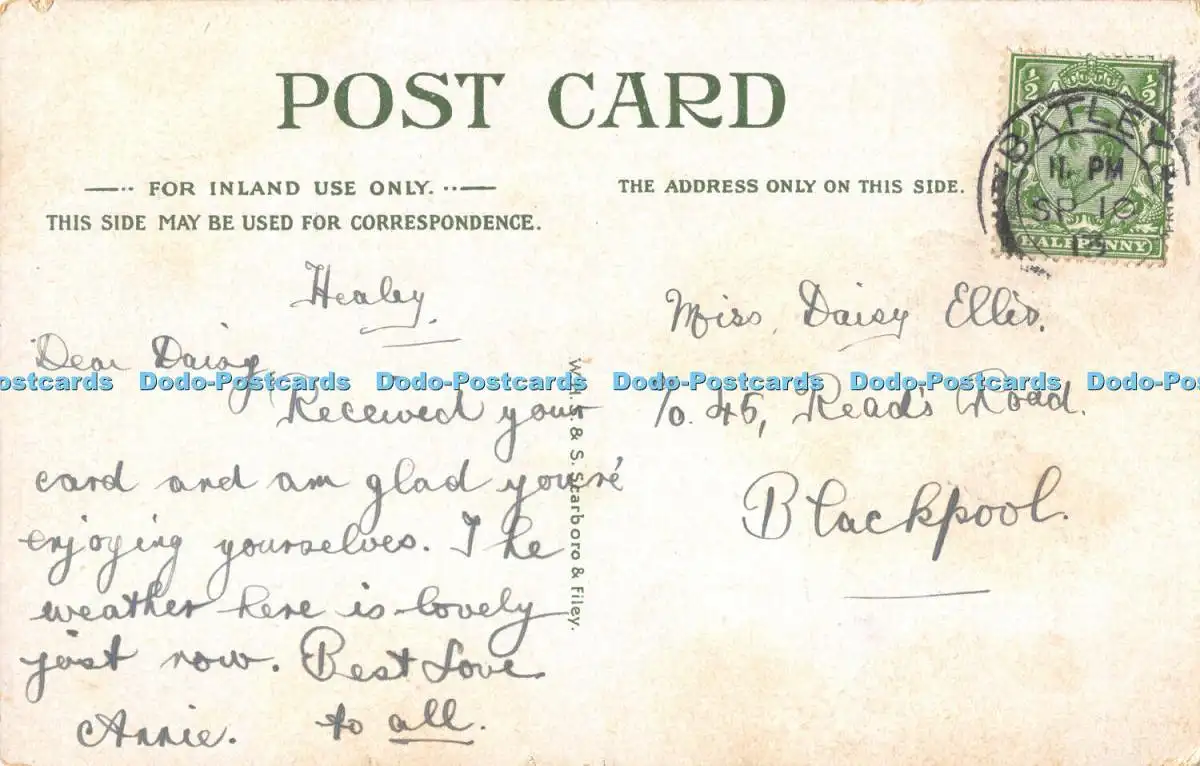 POST CARD
FOR INLAND USE ONLY.
THIS SIDE MAY BE USED FOR CORRESPONDENCE.
THE ADDRESS ONLY ON THIS SIDE.
½ ½
BATLEY
11. PM
SP 10
13
HALFPENNY
Healey.
Dear Daisy,
Received your
card and am glad you're
enjoying yourselves. The
weather here is lovely
just now. Best Love
Annie. to all.
W.H.S. & S. Scarboro & Filey.
Miss. Daisy Ellis.
45, Read's Road.
Blackpool.
ostcards Dodo-Postcards Dodo-Postcards Dodo-Postcards Dodo-Postcards Dodo-Pos